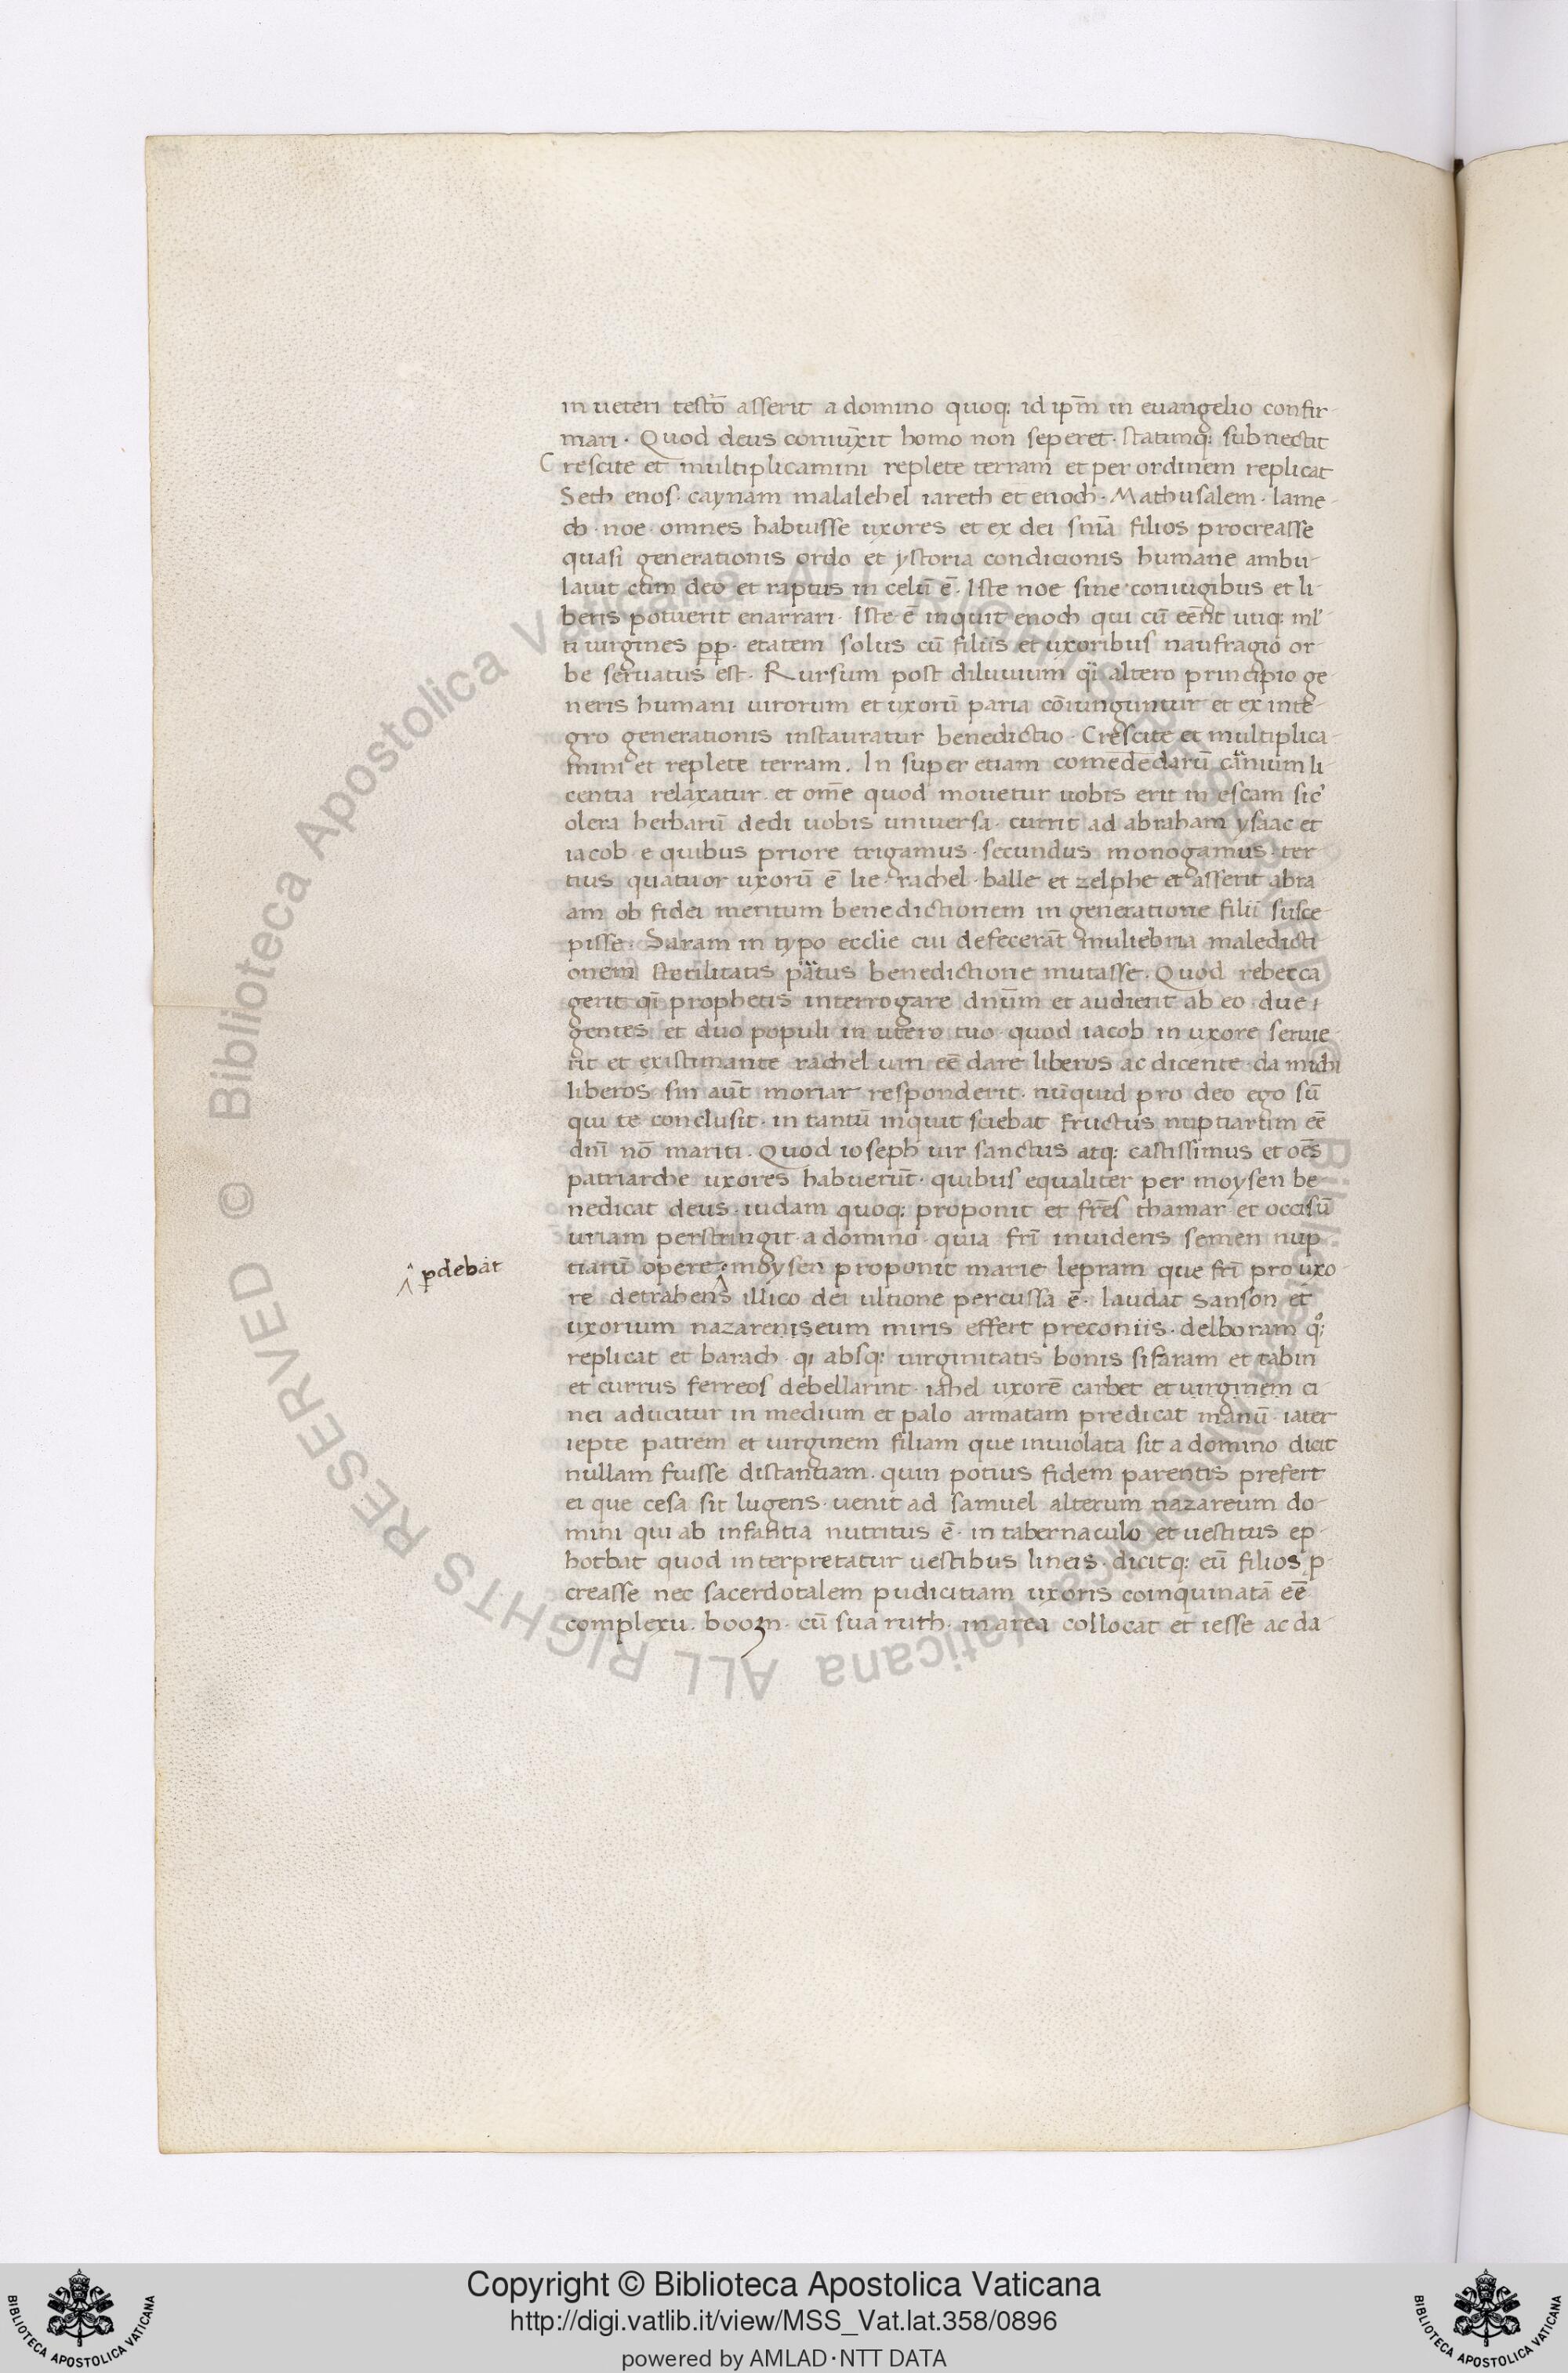 in ueteri testō asserit a domino quoq; id ip̄m in euangelio confir-
mari · Quod deus coniūxit homo non seperet · statimq; subnectit
Crescite et multiplicamini replete terram et per ordinem replicat
Seth enos · caynam malalehel iareth et enoch · Mathusalem · lame-
ch · noe · omnes habuisse uxores et ex dei snīa filios procreasse
quasi generationis ordo et ystoria condicionis humane ambu-
lauit cum deo et raptus in celū ē · Iste noe sine coniugibus et li-
beris potuerit enarrari · Iste ē inquit enoch qui cū eēnt utiq; ml'-
ti uirgines pp · etatem solus cū filiis et uxoribus naufragio or-
be seruatus est · Rursum post diluuium qi altero principio ge-
neris humani uirorum et uxorū paria cōiunguntur et ex inte-
gro generationis instauratur benedictio · Crescite et multiplica-
mini et replete terram. In super etiam comededarū carnium li-
centia relaxatur · et om̄e quod mouetur uobis erit in escam sic'
olera herbarū dedi uobis uniuersa · currit ad abraham ysaac et
iacob · e quibus priore trigamus · secundus monogamus · ter-
tius quatuor uxorū ē lie · rachel · balle et zelphe et asserit abra
am ob fidei meritum benedictionem in generatione filii susce-
pisse · Saram in typo ecclie cui defecerāt muliebria maledicti-
onem sterilitatis partus benedictione mutasse · Quod rebecca
gerit qi prophetis interrogare dnūm et audierit ab eo · due
gentes et duo populi in utero tuo · quod iacob in uxore seruie-
rit et existimante rachel uiri eē dare liberos ac dicente · da michi
liberos sin aūt moriar responderit · nūquid pro deo ego sū
qui te conclusit · in tantū inquit sciebat fructus nuptiarum eē
dnī nō mariti . Quod ioseph uir sanctus atq; castissimus et oēs
patriarche uxores habuerūt · quibus equaliter per moysen be-
nedicat deus · iudam quoq; proponit et frēs thamar et occisū
uriam perstringit · a domino · quia frī inuidens semen nup
tiarū opere · moysen proponit marie lepram que frī pro uxo-
^ pdebat
re detrahens illico dei ultione percussa ē · laudat sanson et
uxorium nazareniseum miris effert preconiis · delboram qo;
replicat et barach · qi absq; uirginitatis bonis sisaram et tabin
et currus ferreos debellarint · iahel uxorē carbet et uirginem ci-
nei aducitur in medium et palo armatam predicat manū · iater
iepte patrem et uirginem filiam que inuiolata sit a domino dicit
nullam fuisse distantiam · quin potius fidem parentis prefert
ei que cesa sit lugens · uenit ad samuel alterum nazareum do-
mini qui ab infantia nutritus ē · in tabernaculo et uestitus ep-
hotbat quod interpretatur uestibus lineis · dicitq; eū filios p-
creasse nec sacerdotalem pudicitiam uxoris coinquinatā eē
complexu . boozn · cū sua ruth · in area collocat et iesse ac da-
© Biblioteca Apostolica Vaticana ALL RIGHTS RESERVED
Copyright © Biblioteca Apostolica Vaticana
http://digi.vatlib.it/view/MSS_Vat.lat.358/0896
powered by AMLAD·NTT DATA
BIBLIOTECA APOSTOLICA VATICANA
BIBLIOTECA APOSTOLICA VATICANA